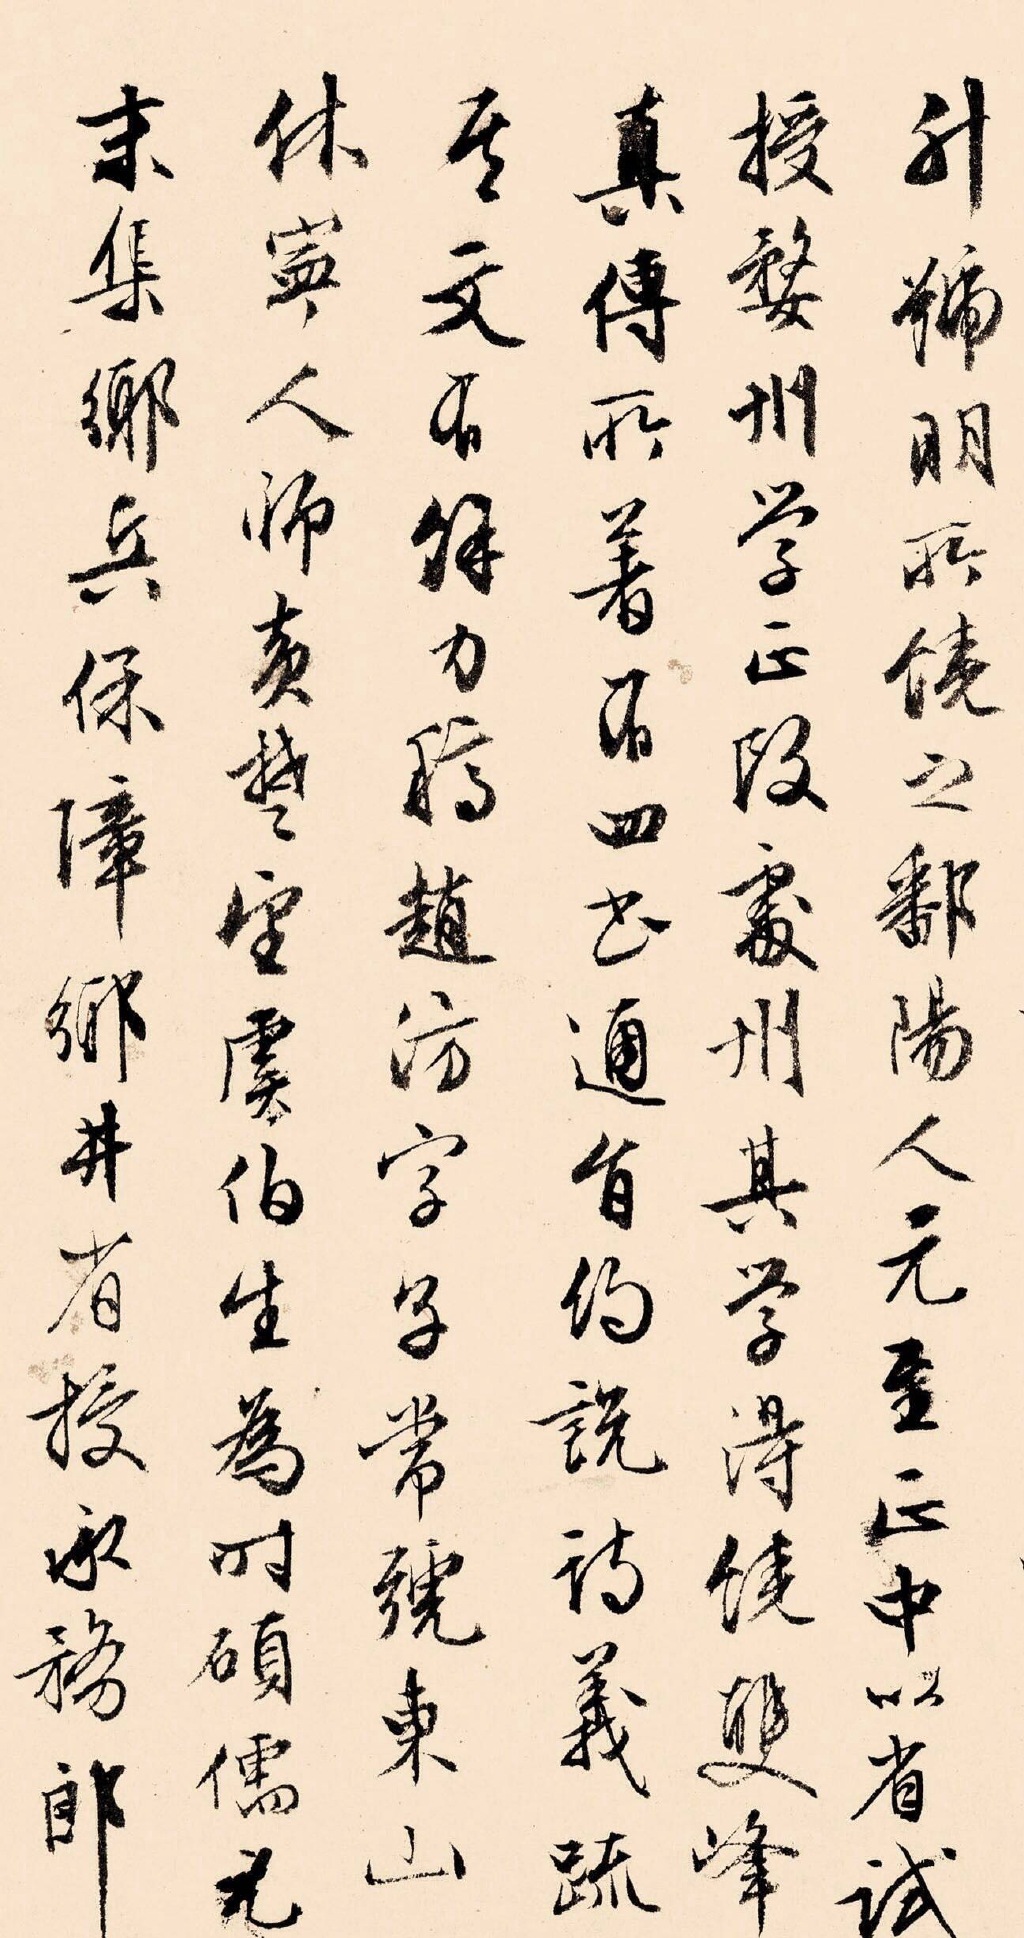 升號明所饒之鄱陽人元至正中以省試
授婺州学正改處州其学得饒雙峰
真傳所著有四书通旨约說詩義疏
其文有餘力稿趙汸字子常號東山
休寧人師黄楚望虞伯生為时碩儒元
末集鄉兵保障鄉井省授承務郎